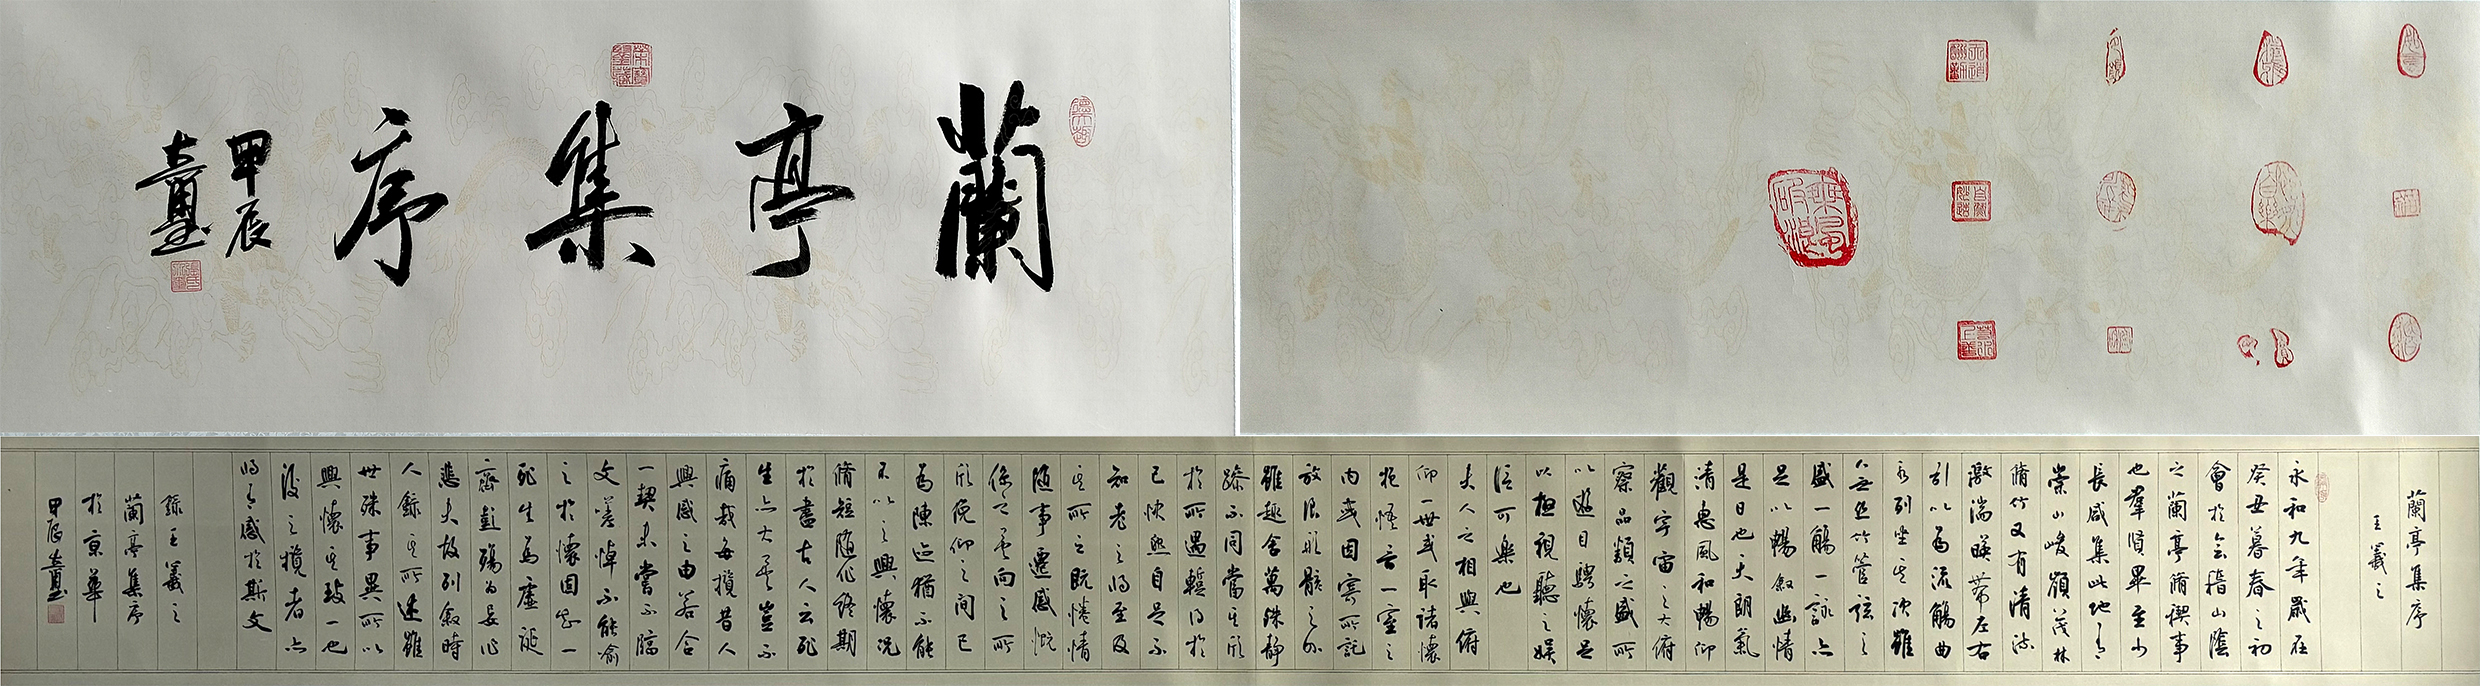 蘭亭集序
甲辰
蘭亭集序
王羲之
永和九年歲在
癸丑暮春之初
會於會稽山陰
之蘭亭脩禊事
也羣賢畢至少
長咸集此地有
崇山峻嶺茂林
脩竹又有清流
激湍暎帶左右
引以為流觴曲
水列坐其次雖
無絲竹管弦之
盛一觴一詠亦
足以暢敘幽情
是日也天朗氣
清惠風和暢仰
觀宇宙之大俯
察品類之盛所
以遊目騁懷足
以極視聽之娛
信可樂也
夫人之相與俯
仰一世或取諸懷
抱悟言一室之
內或因寄所託
放浪形骸之外
雖趣舍萬殊靜
躁不同當其欣
於所遇蹔得於
己快然自足不
知老之將至及
其所之既惓情
隨事遷感慨
係之矣向之所
欣俛仰之間已
為陳迹猶不能
不以之興懷況
脩短隨化終期
於盡古人云死
生亦大矣豈不
痛哉每攬昔人
興感之由若合
一契未嘗不臨
文嗟悼不能喻
之於懷固知一
死生為虛誕
齊彭殤為妄作
悲夫故列敘時
人錄其所述雖
世殊事異所以
興懷其致一也
後之攬者亦
將有感於斯文
錄王羲之
蘭亭集序
於京華
甲辰